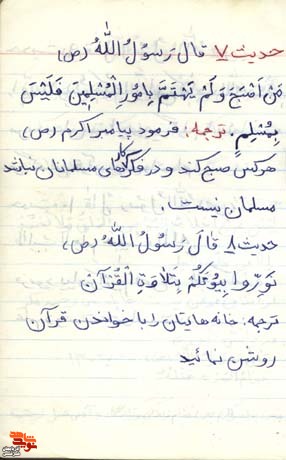 حدیث ۷ قالَ رَسُولُ اللّٰهُ (ص)
مَنْ اَصْبَحَ وَ لَمْ یَهْتَمَّ بِاُمُورِ الْمُسْلِمینَ فَلَیْسَ
بِمُسْلِمٍ. ترجمه: فرمود پیامبر اکرم (ص)
هرکس صبح کند و در فکر کارهای مسلمانان نباشد
مسلمان نیست.
حدیث ۸ قالَ رَسُولُ اللّٰهُ (ص)
نَوِّرُوا بِیُوتَکُمْ بِتَلاوَةِ الْقُرْآنِ
ترجمه: خانه هایتان را با خواندن قرآن
روشن نمائید